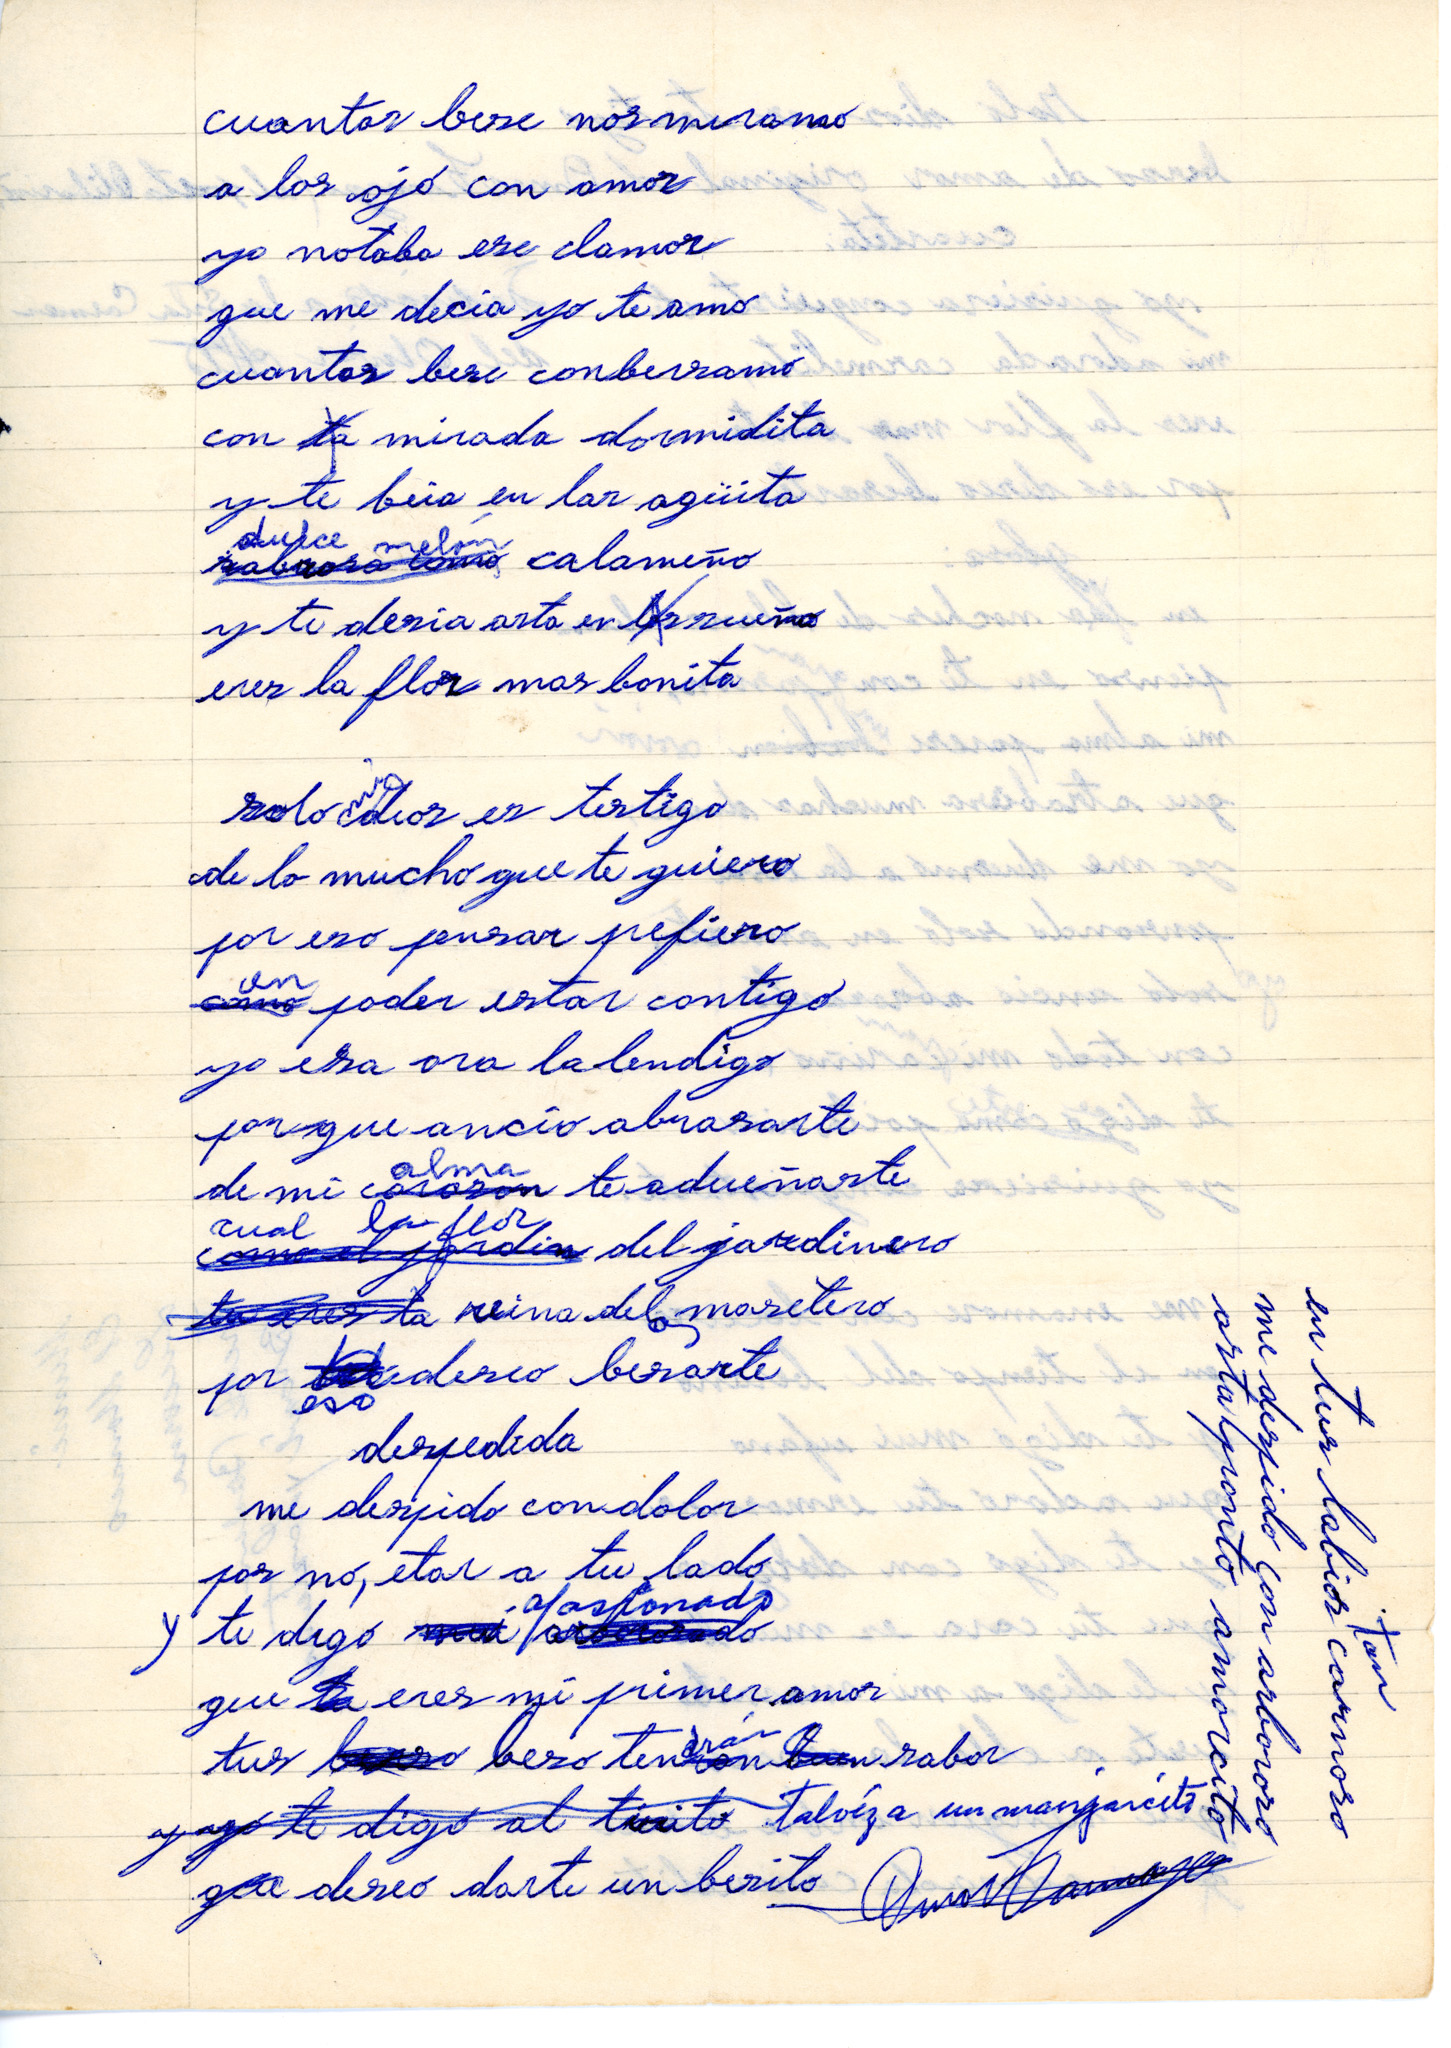 cuantas bese nos miramo
a los ojó con amor
yo notaba ese clamor
que me decia yo te amo
cuantas bese conbersamo
con tu mirada dormidita
y te beia en las agüita
dulce melón calameño
y te desia asta en sueño
eres la flor mas bonita
solo mio dios es testigo
de lo mucho que te quiero
por eso pensar prefiero
en poder estar contigo
yo esa ora la bendigo
por que ancio abrasarte
de mi alma te adueñaste
cual la flor del jardinero
reina del maretero
por eso deseo besarte
despedida
me despido con dolor
por no, etar a tu lado
y te digo apasionado
que eres mi primer amor
tus beso tendrán sabor
talvéz a un manjarcito
que deseo darte un besito
en tus labios tan carnoso
me despido con arboroso
asta pronto amorcito